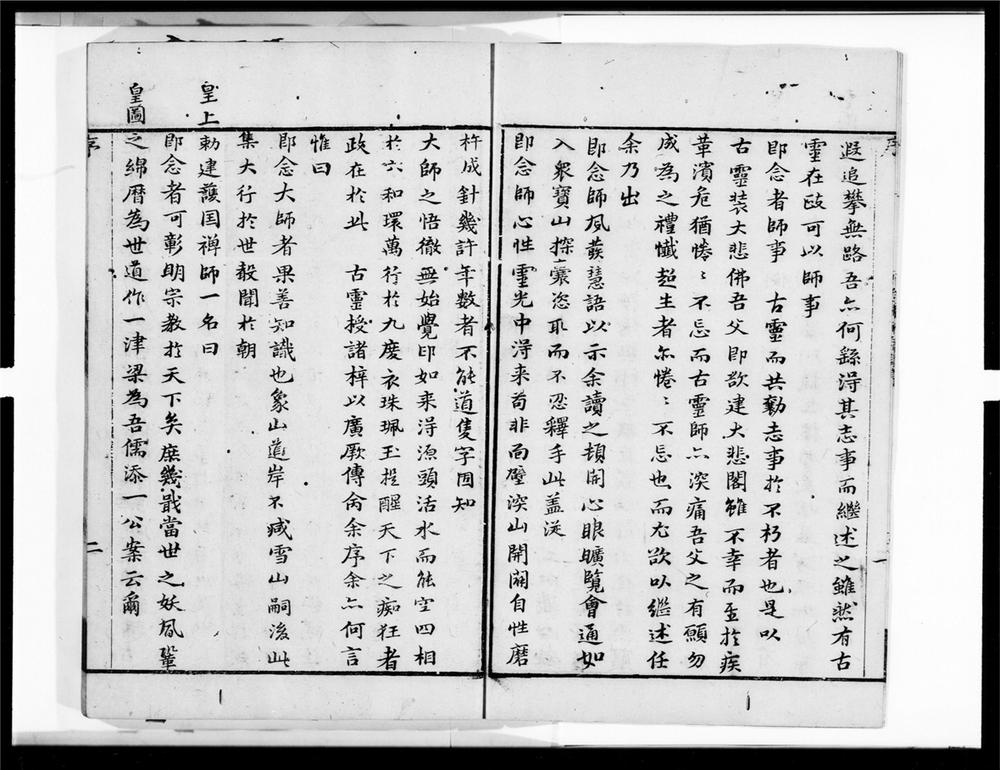 遐追攀無路吾亦何繇淂其志事而継述之雖然有古
靈在吾可以師事
即念者師事 古靈而共勷志事扵不朽者也是以
古靈裝大悲佛吾父即欲建大悲閣雖不幸而至扵疾
革濱危猶惓〻不忘而古靈師亦深痛吾父之有願勿
成為之禮懺超生者亦惓〻不忘也而尤欲以継述任
余乃出
即念師夙蕆慧語以示余讀之頓開心眼曠覽會通如
入衆寶山探囊恣取而不忍釋手此盖従
即念師心性靈光中淂来苟非面壁深山開闢自性磨
杵成針幾許年数者不能道隻字固知
大師之悟徹無始覺印如来淂源頭活水而能空四相
扵六和環萬行扵九度衣珠珮玉提醒天下之痴狂者
政在扵此 古靈授諸梓以廣厥傳命余序余亦何言
惟曰
即念大師者果善知識也象山道岸不減雪山嗣後此
集大行扵世毅聞扵朝
皇上勅建護国禅師一名曰
即念者可彰明宗教扵天下矣庶幾戢當世之妖風鞏
皇圖之綿暦為世道作一津梁為吾儒添一公案云爾
序 一
序 二